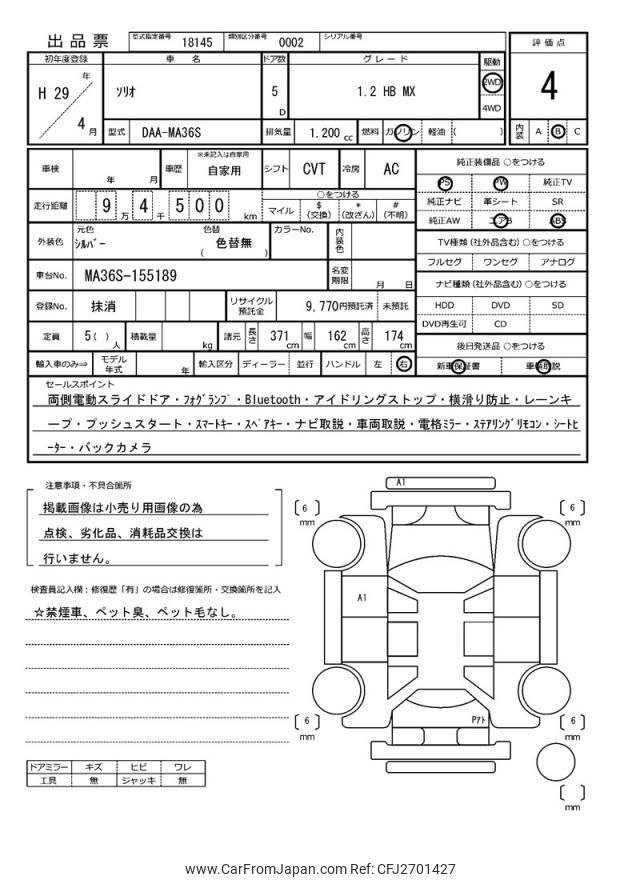 出品票 型式指定番号 18145 類別区分番号 0002 シリアル番号
評価点
4
内装 A B C
初年度登録 車名 ドア数 グレード 駆動
H 29 年 4 月 ソリオ 5 D 1.2 HB MX 2WD 4WD
型式 DAA-MA36S 排気量 1,200 cc 燃料 ガソリン 軽油 ( )
車検 年 月 車歴 ※未記入は自家用 自家用 シフト CVT 冷房 AC
走行距離 9 万 4 千 5 0 0 km ○をつける
マイル $ (交換) * (改ざん) # (不明)
外装色 元色 シルバー 色替 ( 色替無 ) カラーNo. 内装色
車台No. MA36S-155189 名変期限 月 日
登録No. 抹消 リサイクル預託金 9,770円預託済 未預託
定員 5( ) 人 積載量 kg 諸元 長さ 371 cm 幅 162 cm 高さ 174 cm
輸入車のみ⇒ モデル年式 年 輸入区分 ディーラー ・ 並行 ハンドル 左 右
純正装備品 ○をつける
PS PW 純正TV
純正ナビ 革シート SR
純正AW エアB ABS
TV種類 (社外品含む) ○をつける
フルセグ ワンセグ アナログ
ナビ種類 (社外品含む) ○をつける
HDD DVD SD
DVD再生可 CD
後日発送品 ○をつける
新車保証書 車輌取説
セールスポイント
両側電動スライドドア・フォグランプ・Bluetooth・アイドリングストップ・横滑り防止・レーンキ
ープ・プッシュスタート・スマートキー・スペアキー・ナビ取説・車両取説・電格ミラー・ステアリングリモコン・シートヒ
ーター・バックカメラ
注意事項・不具合箇所
掲載画像は小売り用画像の為
点検、劣化品、消耗品交換は
行いません。
検査員記入欄:修復歴「有」の場合は修復箇所・交換箇所を記入
☆禁煙車、ペット臭、ペット毛なし。
ドアミラー キズ ヒビ ワレ
工具 無 ジャッキ 無
A1
[ 6 ] mm
[ 6 ] mm
A1
Pアト
[ 6 ] mm
[ 6 ] mm
[ ] mm
www.CarFromJapan.com Ref: CFJ2701427